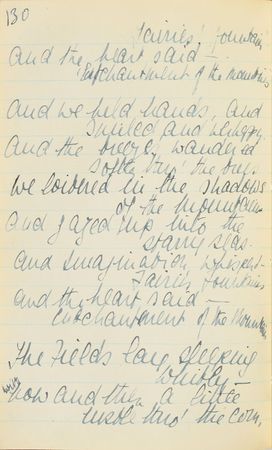 130
fairies' fountain
and the heart said —
enchantment of the mountains
and we held hands, and
smiled and
and the breeze wandered
softly thro' the trees
we loitered in the shadows
of the mountain
and gazed up into the
starry skies
and imagination whispered
fairies fountains
and the heart said —
enchantment of the mountains
The Fields lay sleeping
whitely —
now and then a little
thro' the corn,